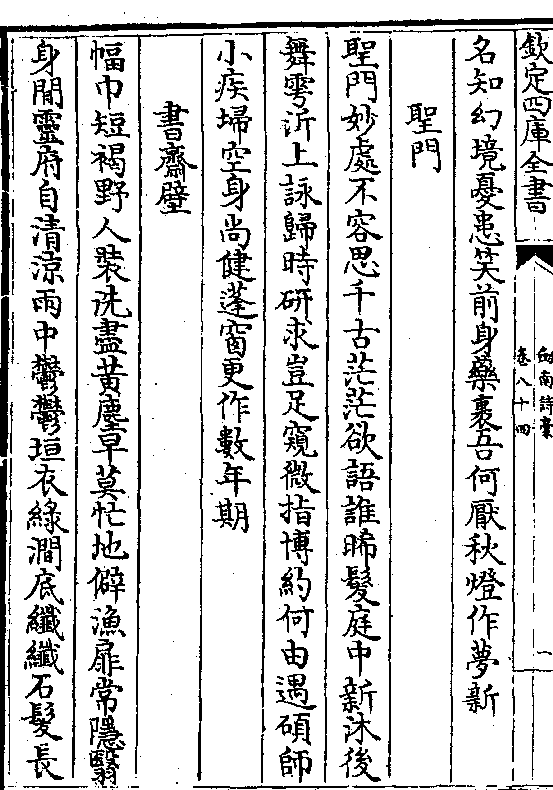 欽定四庫全書
劍南詩稾
卷八十四
一
名知幻境憂患笑前身藥裹吾何厭秋燈作夢新
聖門
聖門妙處不容思千古茫茫欲語誰晞髮庭中新沐後
舞雩沂上詠歸時研求豈足窺微指博約何由遇碩師
小疾埽空身尚健蓬窗更作數年期
書齋壁
幅巾短褐野人裝洗盡黄塵早莫忙地僻漁扉常隱翳
身閒靈府自清涼雨中鬱鬱垣衣綠澗底纖纖石髮長